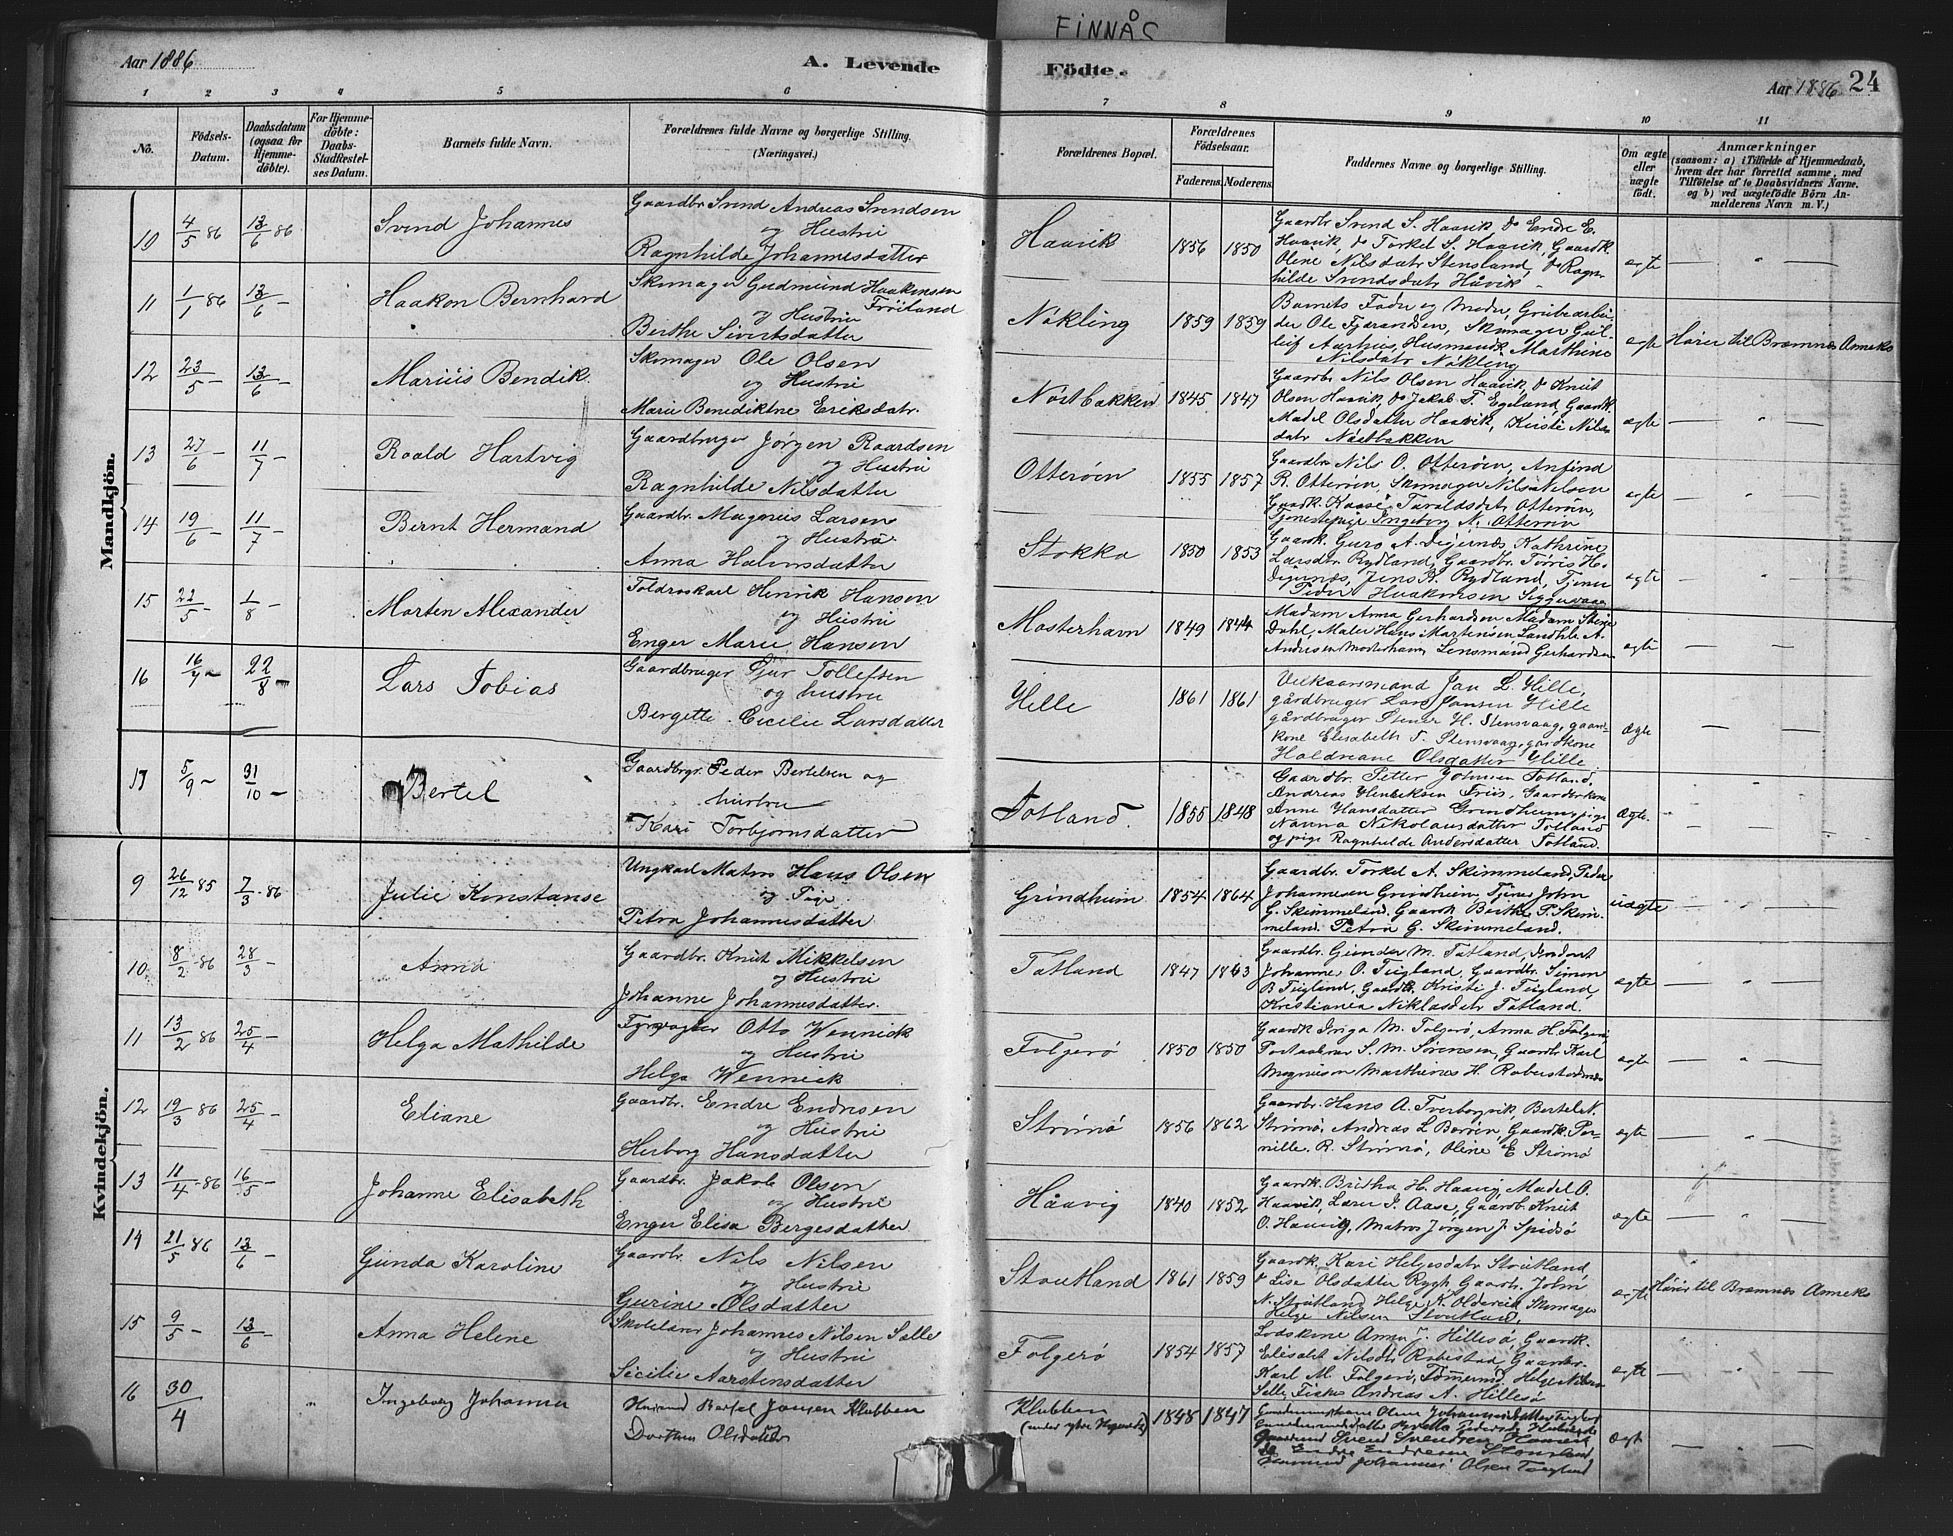 FINNÅS
Aar 1886
A. Levende
Födte.
Aar 1886
24
1 2 3 4 5 6
7 8 9 10 11
No.
Födsels-Datum.
Daabsdatum (ogsaa for Hjemme-döbte).
For Hjemme-döbte: Daabs-Stadfæstel-ses Datum.
Barnets fulde Navn.
Forældrenes fulde Navne og borgerlige Stilling.
(Næringsvei.)
Forældrenes Bopæl.
Forældrenes Födselsaar.
Faderens. Moderens.
Faddernes Navne og borgerlige Stilling.
Om ægte eller uægte födt.
Anmærkninger
(saasom: a) i Tilfælde af Hjemmedaab,
hvem der har forrettet samme, med
Tilföielse af to Daabsvidners Navne.
og b) ved uægtefödte Börn An-
melderens Navn m. V.)
Mandkjön.
10 4/5 86 13/6 86 Svend Johannes
Gaardbr Svend Andreas Svendsen
og Hustru
Ragnhilde Johannesdatter
Haavik 1856 1850
Gaardbr Svend S. Haavik, do Endre E.
Haavik, do Torkel S. Haavik, Gaardk.
Oline Nilsdatr Stensland, do Ragn-
hilde Svendsdatr Håvik
ægte
11 1/1 86 13/6 Haakon Bernhard
Skomager Gudmund Haakonsen
og Hustru Fröiland
Berthe Sivertsdatter
Nökling 1859 1859
Barnets Fader og Moder, Grubearbei-
der Ole Tjerandsen, Skomager Gul-
leif Aarhus, Husmandk Marthine
Nilsdatr Nökling
ægte Hører til Bremnes Anneks
12 23/5 13/6 Marius Bendik.
Skomager Ole Olsen
og Hustru
Marie Benediktne Eriksdatr.
Nöstbakken 1845 1847
Gaardbr Nils Olsen Haavik, do Knut
Olsen Haavik, do Jakob T. Egeland Gaardk.
Madel Olsdatter Haavik, Kirsti Nils-
datr Nöstbakken
ægte
13 27/6 11/7 Roald Hartvig
Gaardbruger Jörgen Raardsen
og Hustru
Ragnhilde Nilsdatter
Otteröen 1855 1857
Gaardbr Nils O. Otteröen, Anfind
R. Otteröen, Skomager Nils Nilsen
Gaardk. Taraldsdatr Otteröen,
Tjenestepige Ingeborg N. Otteröen
ægte
14 19/6 11/7 Bernt Hermand
Gaardbr. Magnus Larsen
og Hustru
Anna Halvorsdatter
Stokka 1850 1853
Gaardk. Guro A. Digernæs Kathrine
Larsdtr Rydland, Gaardbr. Torris H.
Digernæs, Jens R. Rydland, Tjener
Peder Haakonsen Siggervaag
ægte
15 22/5 1/8 Morten Alexander
Toldroskarl Henrik Hansen
og Hustru
Enger Marie Hansen
Mosterhavn 1849 1844
Madam Anna Gerhardsen Madam Stine
Dahl, Maler Hans Martensen Landhl. A.
Andresen Mosterhavn, Lensmand Gerhardsen
ægte
16 16/7 22/8 Lars Tobias
Gaardbruger Sjur Tollefsen
og hustru
Bergette Cecilie Larsdatter
Hille 1861 1861
Velkaarsmand Jan L. Hille,
gårdbruger Lars Jansen Hille
gårdbruger Stener H. Stensvaag, gaard-
kone Elisabeth T. Stensvaag, gardkone
Haldriane Olsdatter Hille
Ægte
17 5/9 31/10 Bertel
Gaardbrgr. Peder Bertelsen og
hustru
Kari Torbjornsdatter
Totland. 1855 1848
Gaardbr. Petter Johnsen Totland,
Andreas Henriksen Friis, Gaardbrkone
Anne Hansdatter Grindheim, pige
Nanna Nikolausdatter Totland
og pige Ragnhilde Andersdatter Totland.
Ægte.
Kvindekjön.
9 26/12 85 7/3 86 Julie Konstanse
Ungkarl Matros Hans Olsen
og Pige
Petra Johannesdatter
Grindheim 1854 1864
Gaardbr. Torkel A. Skimmeland, Peder
Johannesen Grindheim, Tjener John
G. Skimmeland, Gaardk Berthe P. Skim-
meland, Petra G. Skimmeland.
uægte
10 8/2 86 28/3 Anna
Gaardbr. Knut Mikkelsen
og Hustru
Johanne Johannesdatter
Tatland 1847 1843
Gaardbr. Gunder M. Tatland,
Johannes O. Teigland, Gaardbr. Simon
B Teigland, Gaardk. Kristi J. Teigland,
Kristianea Niklasdatr Tatland.
ægte
11 13/2 86 25/4 Helga Mathilde
Fyrvogter Otto Wennick
og Hustru
Helga Wennick
Folgerö 1850 1850
Gaardk Inga M. Folgerö, Anna H. Folgerö
Postaabner S. M. Sörensen, Gaardbr. Karl
Magnusen Marthines H.
ægte
12 19/3 86 25/4 Eliane
Gaardbr. Endre Endresen
og Hustru
Herborg Hansdatter
Strömö 1856 1862
Gaardbr. Hans A. Tverborgvik, Bertel N.
Strömö, Andreas L Borröen, Gaardk. Per-
nille. R. Strömö, Oline E Strömö
ægte
13 11/4 86 16/5 Johanne Elisabeth
Gaardbr. Jakob Olsen
og Hustru
Enger Elisa Bergesdatter
Håavig 1840 1852
Gaardk. Britha H. Haavig, Madel O.
Haavik, Lærer J. Aase, Gaardb. Knut
O. Haavig, Matros Jörgen J. Spidsö
ægte
14 21/5 86 13/6 Gunda Karoline
Gaardbr. Nils Nilsen
og Hustru
Gurine Olsdatter
Stoutland 1861 1859
Gaardk. Kari Helgesdatr Stoutland
do Lisa Olsdatter Rygh Gaardbr. John
N. Stoutland, Helge K. Oldervik, Skomager
Helge Nilsen Stoutland
ægte Hører til Bremnes Anneks
15 9/5 13/6 Anna Helene
Skolelærer Johannes Nilsen Sælle
og Hustru
Sicilie Aarstensdatter
Folgerö 1854 1857
Lodskone Anna J. Hillesö, Gaardk.
Elisabet Nilsdtr Robestad, Gaardbr.
Karl M. Folgerö, Tömermd. Helge Nilsen
Sælle, Fisker Andreas A. Hillesö
ægte
16 30/4 Ingeborg Johanna
Husmd Bertel Jansen Klubben
Dorthea Olsdatter
Klubben 1848 1847
Oline Johannesdatter Teigland
Gaardmd Svend Svendsen Haavik
do Endre Endresen Stensland,
Johannes Olsen Teigland
ægt